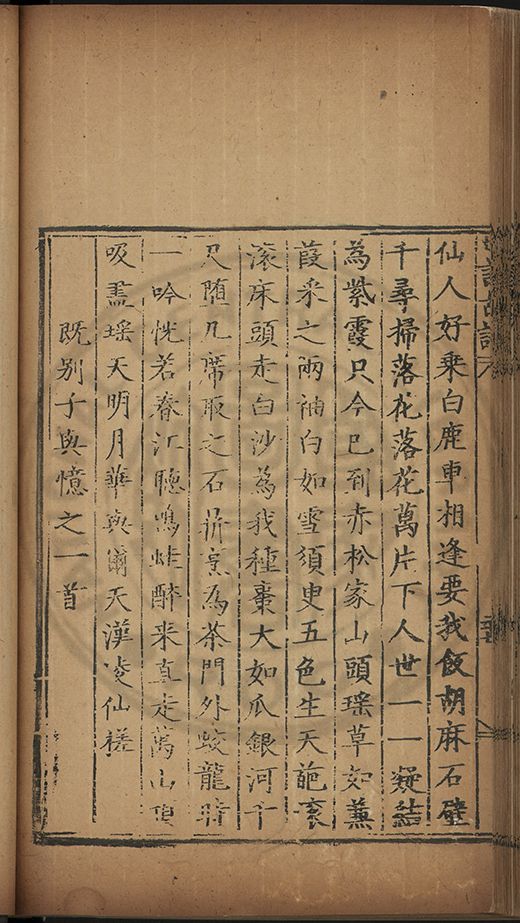 仙人好乗白鹿車相逢要我飯胡麻石壁
千尋掃落花落花萬片下人世一一凝結
為紫霞只今已到赤松家山頭瑶草如蒹
葭采之兩袖白如雪須臾五色生天葩衮
滚床頭走白沙為我種棗大如瓜銀河千
尺墮几席取之石鼎烹為茶門外蛟龍時
一吟恍若春江聽鳴蛙醉来直走萬山頂
吸盡瑶天明月華與爾天漢凌仙槎
既别子與憶之一首